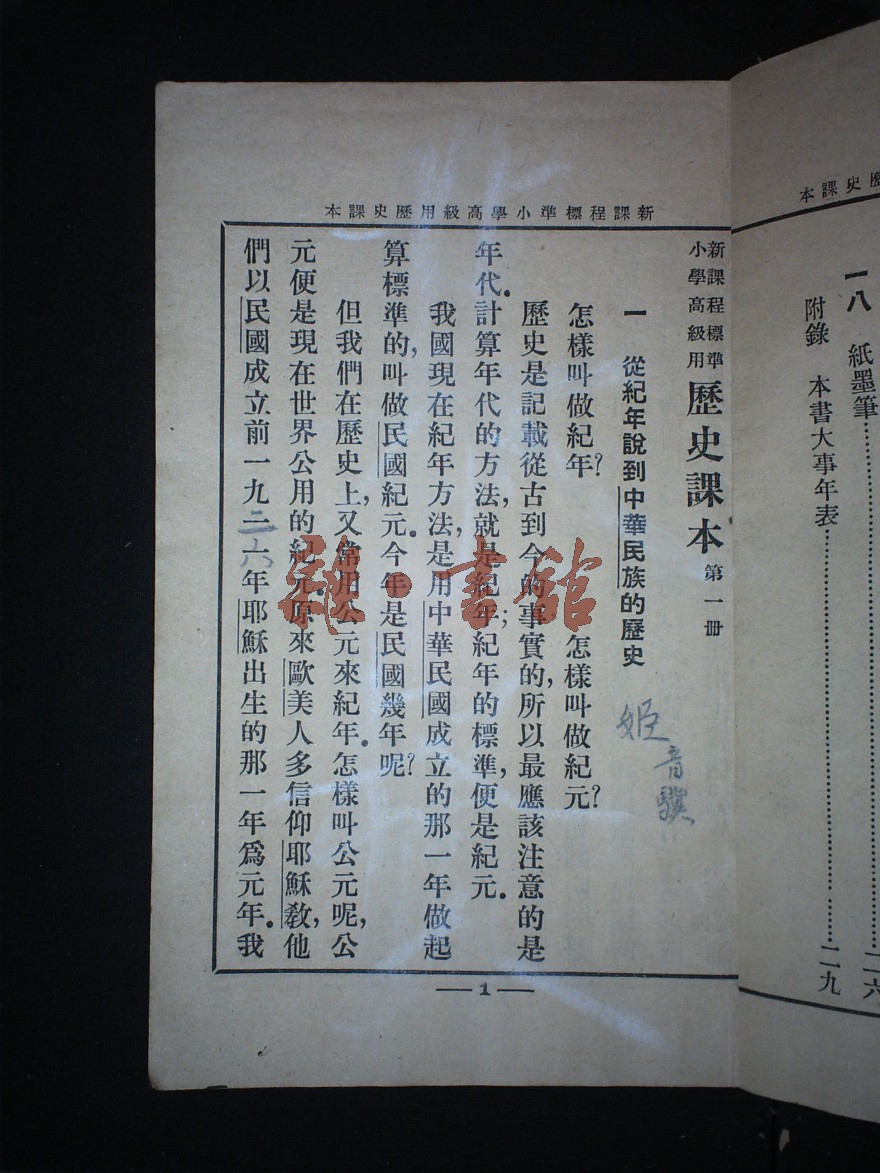 歷史課本
一八 紙墨筆……二六
附錄 本書大事年表……二九
新課程標準小學高級用歷史課本
新課程標準
小學高級用
歷史課本 第一冊
一 從紀年說到中華民族的歷史
姬音驥
怎樣叫做紀年? 怎樣叫做紀元?
歷史是記載從古到今的事實的,所以最應該注意的是
年代.計算年代的方法,就是紀年;紀年的標準,便是紀元.
我國現在紀年方法,是用中華民國成立的那一年做起
算標準的,叫做民國紀元.今年是民國幾年呢?
但我們在歷史上,又常用公元來紀年.怎樣叫公元呢,公
元便是現在世界公用的紀元.原來歐美人多信仰耶穌教,他
們以民國成立前一九二六年耶穌出生的那一年爲元年.我
1
雜·書館